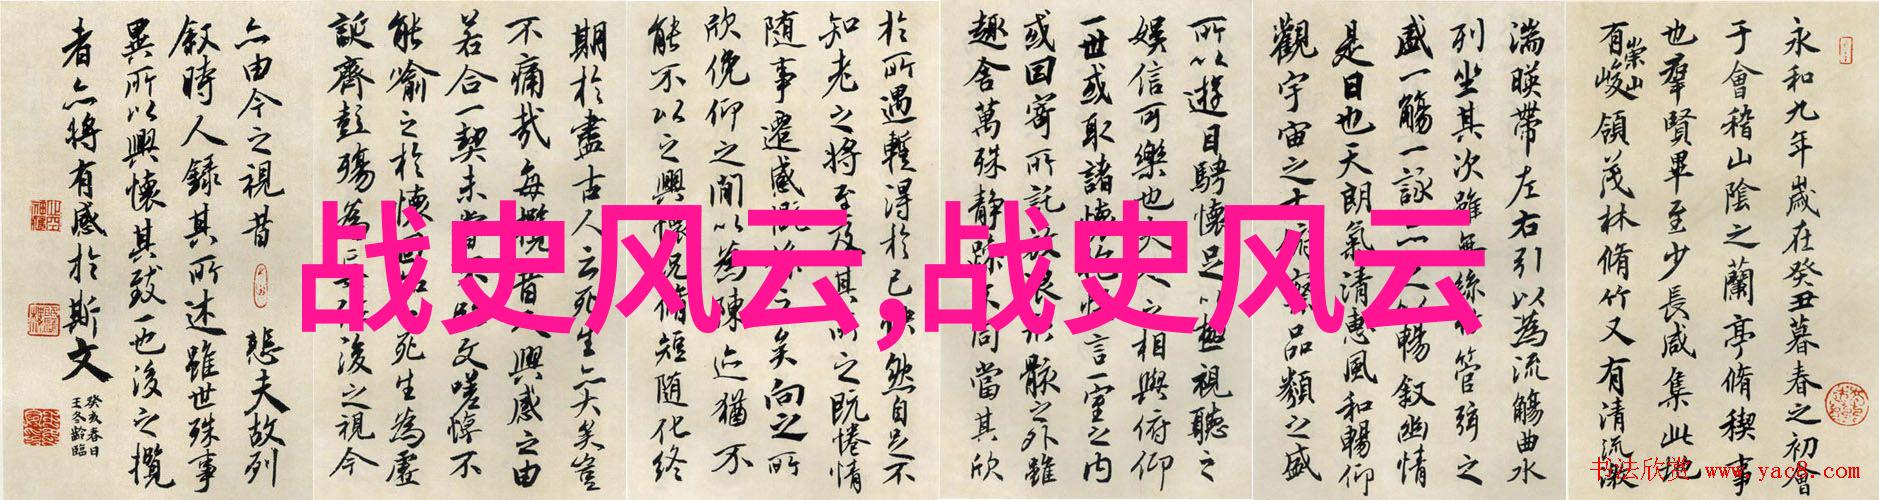 永和九年歲在癸丑暮春之初會
于會稽山陰之蘭亭脩稧事
也羣賢畢至少長咸集此地
有崇山峻領茂林脩竹又有清流激
湍暎帶左右引以為流觴曲水
列坐其次雖無絲竹管弦之
盛一觴一詠亦足以暢敘幽情
是日也天朗氣清惠風和暢仰
觀宇宙之大俯察品類之盛
所以遊目騁懷足以極視聽之
娛信可樂也夫人之相與俯仰
一世或取諸懷抱悟言一室之內
或因寄所託放浪形骸之外雖
趣舍萬殊靜躁不同當其欣
於所遇暫得於己快然自足不
知老之將至及其所之既惓情
随事遷感慨係之矣向之所
欣俛仰之間以為陳迹猶不
能不以之興懷況脩短随化終
期於盡古人云死生亦大矣豈
不痛哉每攬昔人興感之由
若合一契未嘗不臨文嗟悼不
能喻之於懷固知一死生為虛
誕齊彭殤為妄作後之視今
亦由今之視昔 悲夫故列
敘時人錄其所述雖世殊事
異所以興懷其致一也後之攬
者亦將有感於斯文
癸亥春日
王冬齡臨
战史风云,战史风云
书法欣赏 www.yac8.com